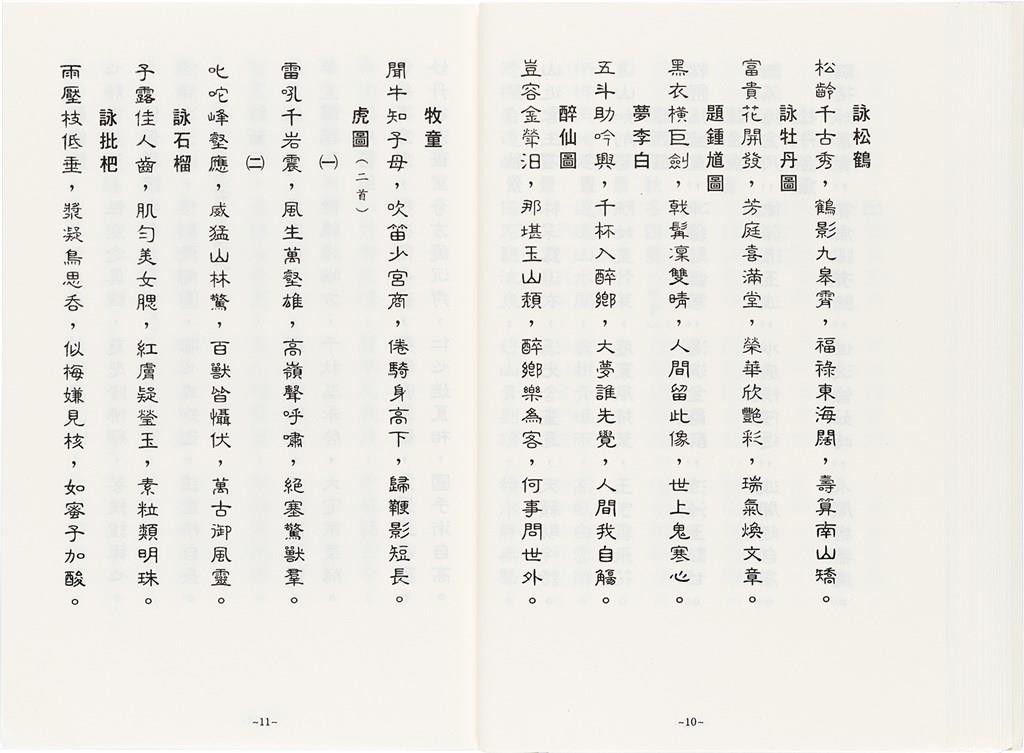 詠松鶴
松齡千古秀，鶴影九皋霄，福祿東海闊，壽算南山矯。
詠牡丹圖
富貴花開發，芳庭喜滿堂，榮華欣艷彩，瑞氣煥文章。
題鍾馗圖
黑衣橫巨劍，戟髯凜雙晴，人間留此像，世上鬼寒心。
夢李白
五斗助吟興，千杯入醉鄉，大夢誰先覺，人間我自觴。
醉仙圖
豈容金聲汨，那堪玉山頹，醉鄉樂為客，何事問世外。
~10~
牧童
聞牛知子母，吹笛少宮商，倦騎身高下，歸鞭影短長。
虎圖（二首）
㈠
雷吼千岩震，風生萬壑雄，高嶺聲呼嘯，絕塞驚獸羣。
㈡
叱咜峰壑應，威猛山林驚，百獸皆懾伏，萬古御風靈。
詠石榴
子露佳人齒，肌勻美女腮，紅膚疑瑩玉，素粒類明珠。
詠批杷
雨壓枝低垂，漿凝鳥思吞，似梅嫌見核，如蜜子加酸。
~11~